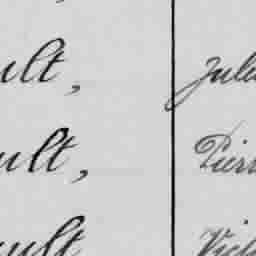 ult, Jule
ult, Pierr
ult Vict